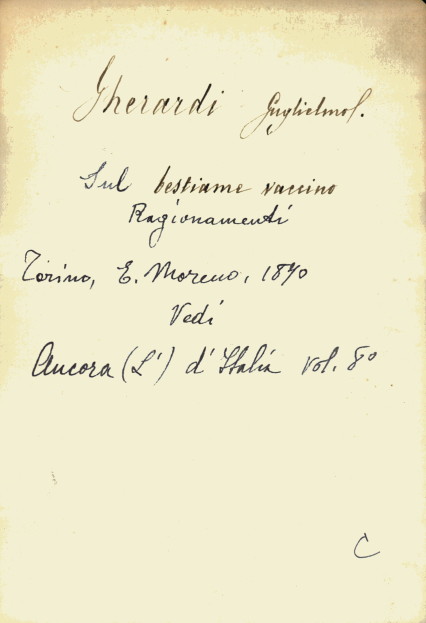 Gherardi Guglielmo f.
Sul bestiame vaccino
Ragionamenti
Torino, E. Moreno, 1870
Vedi
Ancora (L') d'Italia vol. 8º
C